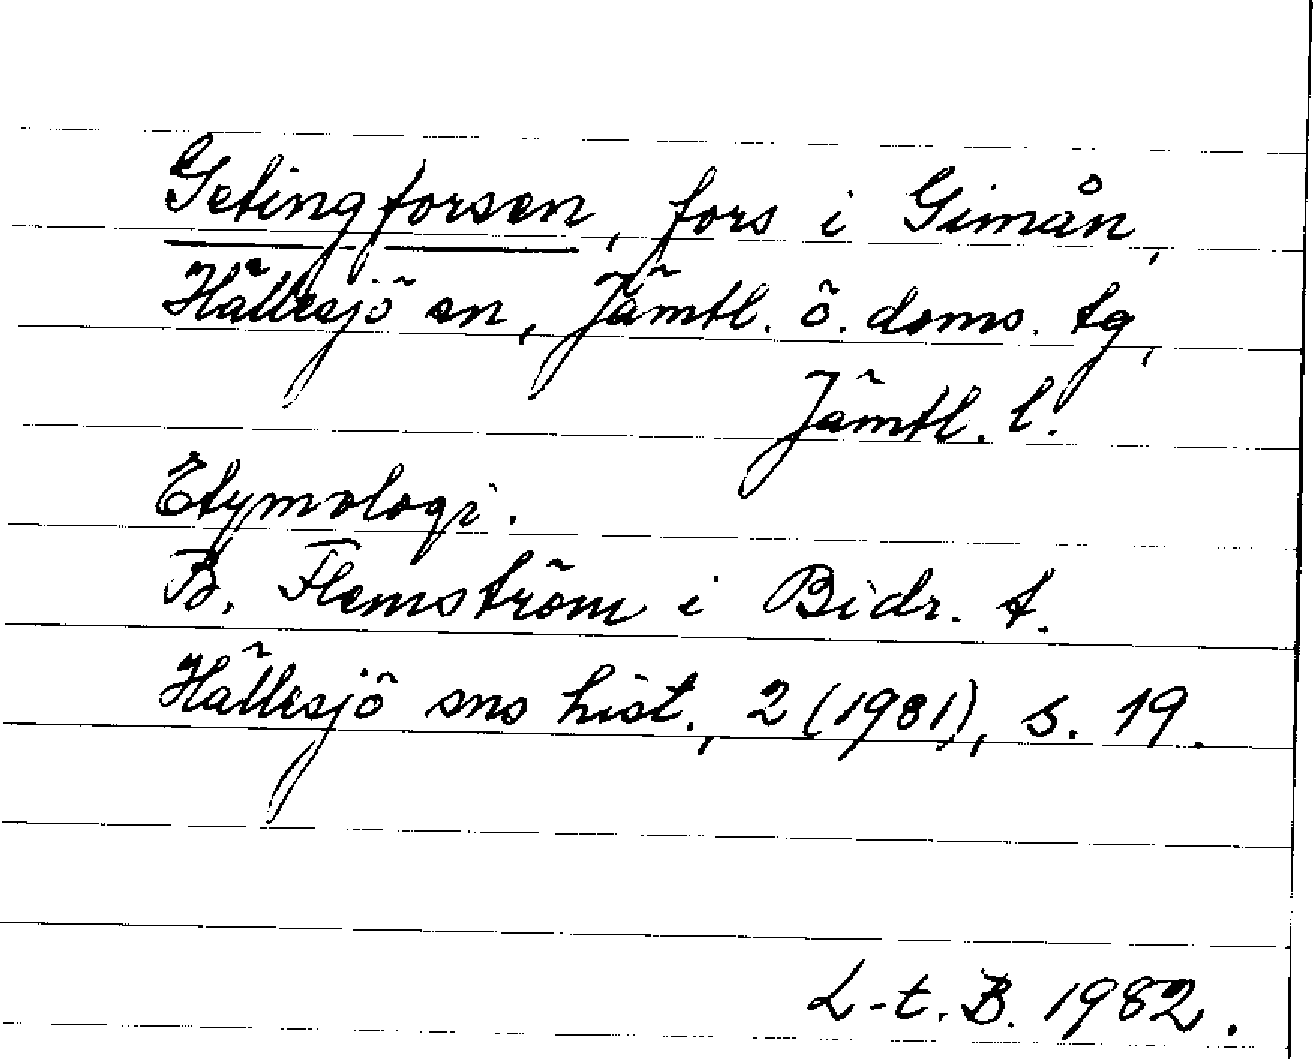 Getingforsen, fors i Gimån,
Hällesjö sn, Jämtl. ö. doms. tg,
Jämtl. l.
Etymologi.
B. Flemström i Bidr. t.
Hällesjö sns hist., 2 (1981), s. 19.
L-t. B. 1982.